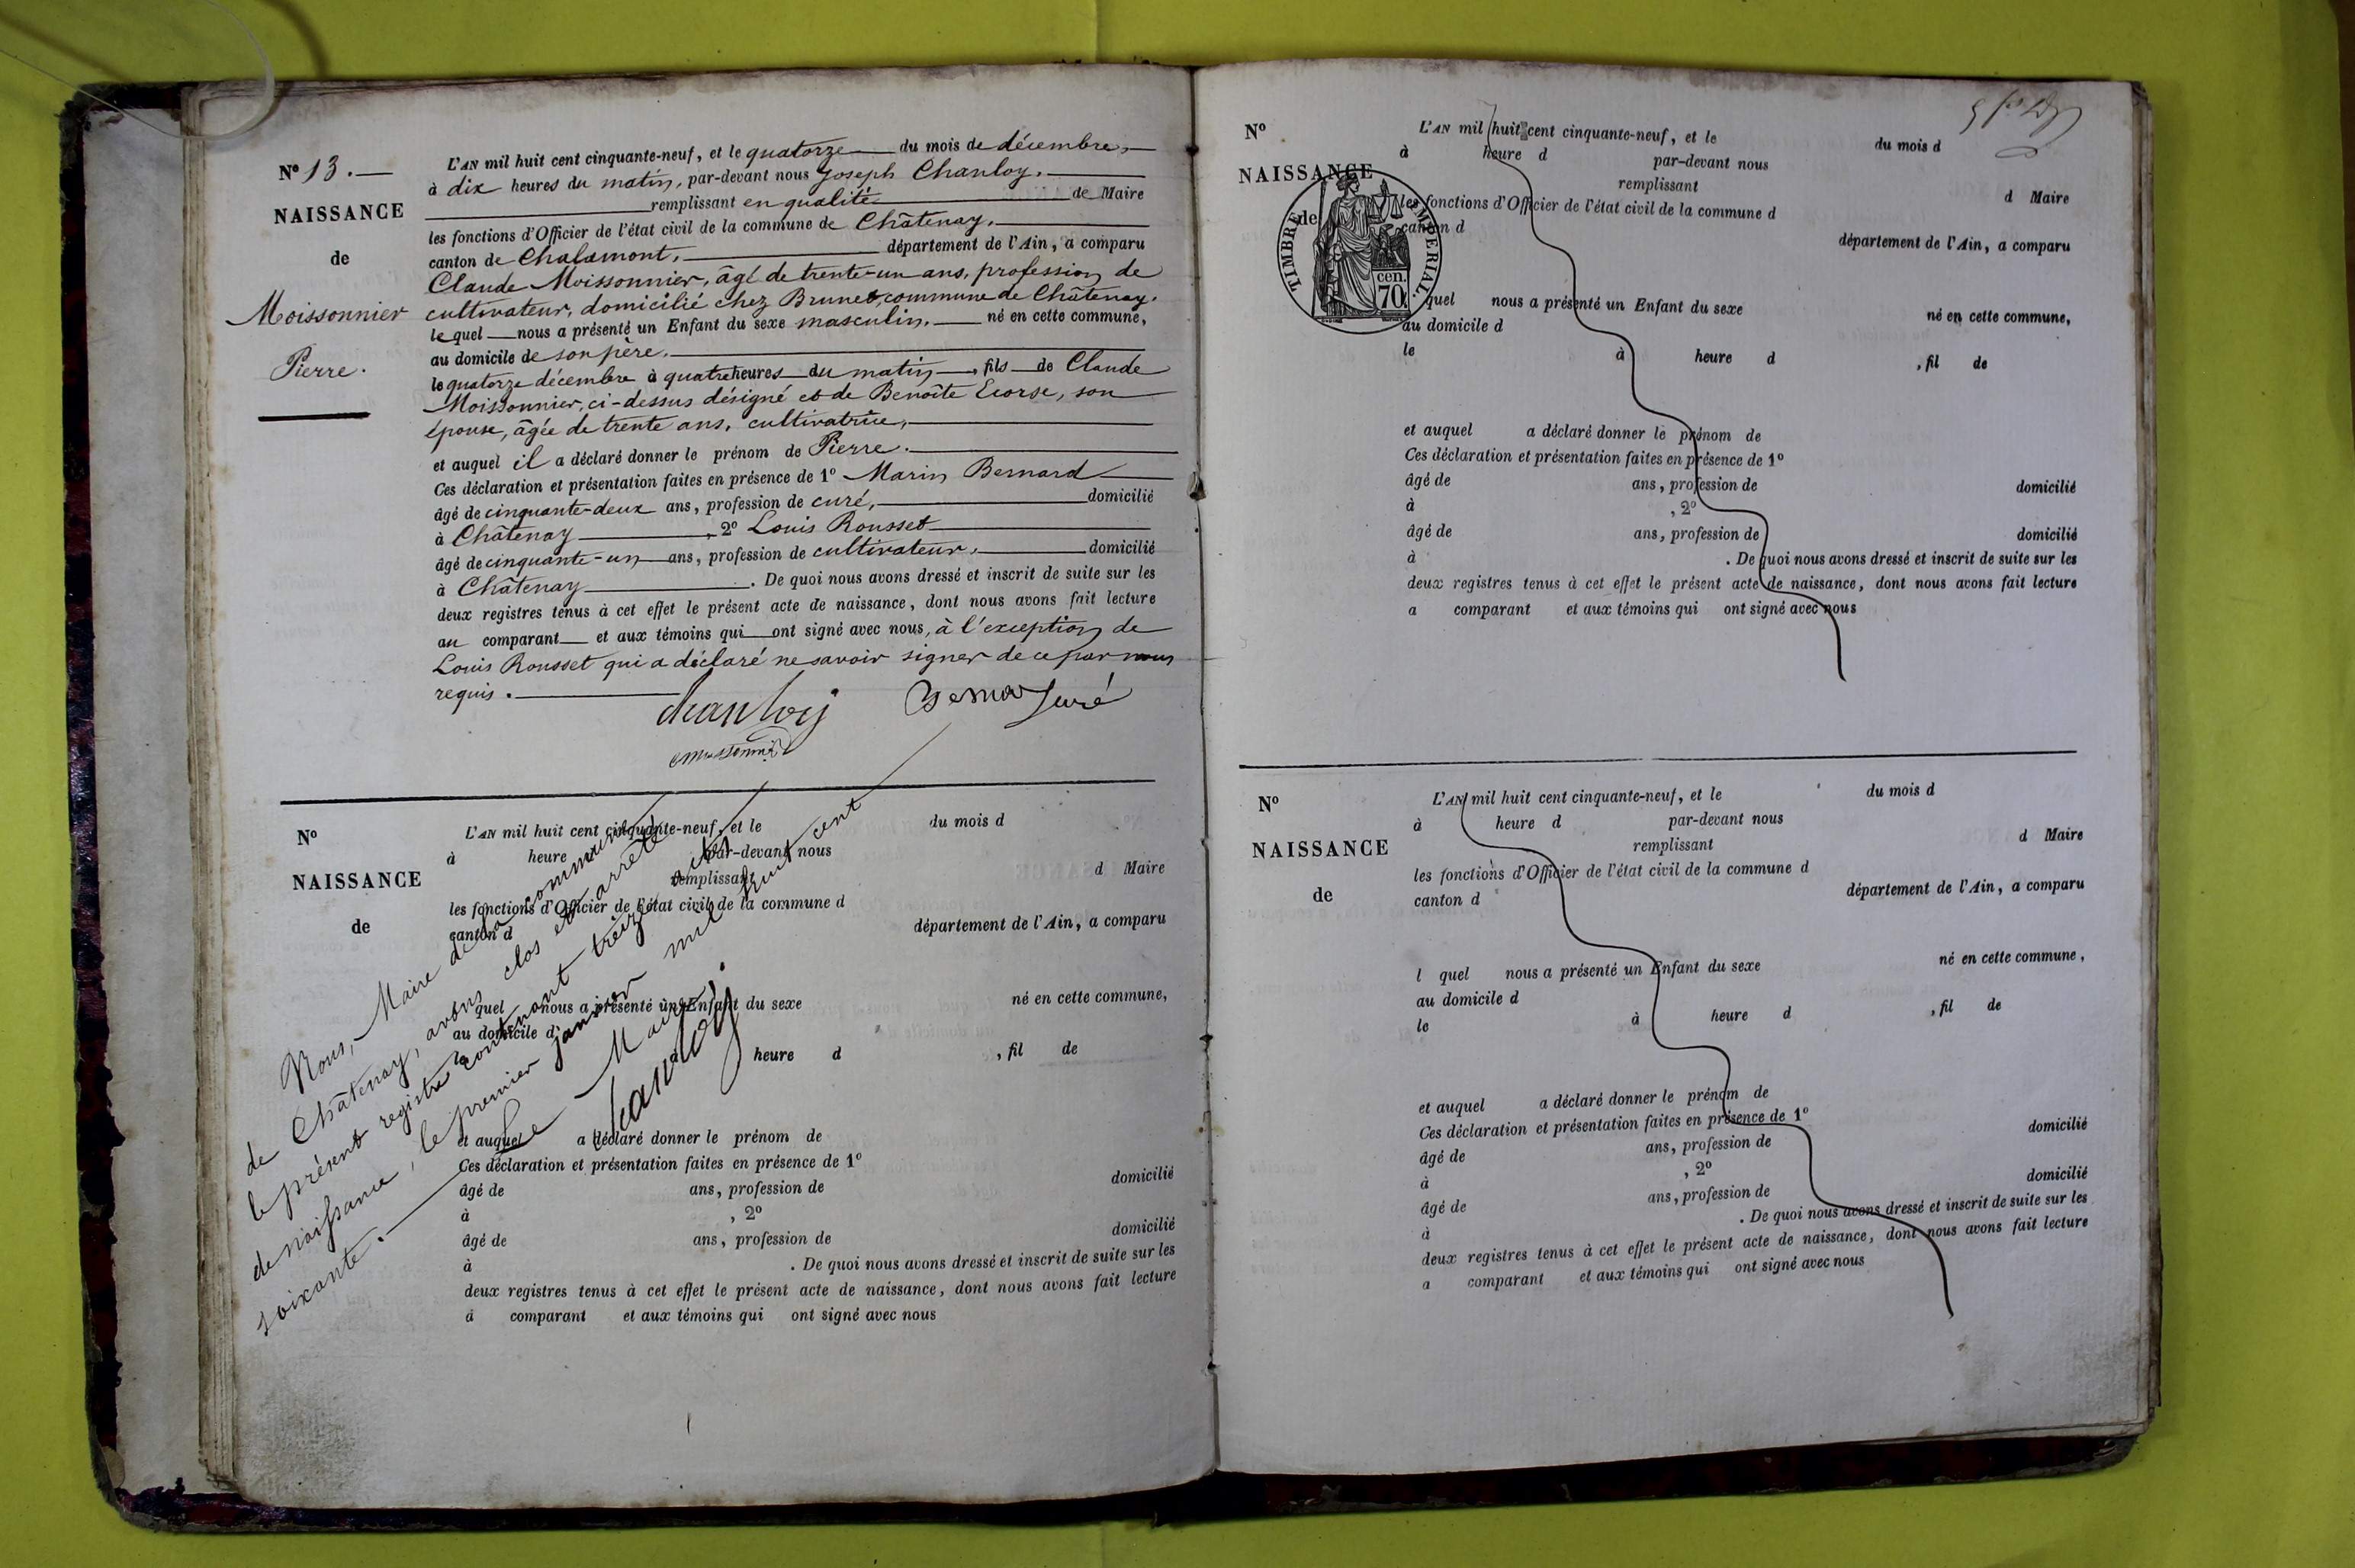 N° 13.
NAISSANCE
de
Moissonnier
Pierre.
L'AN mil huit cent cinquante-neuf, et le quatorze du mois de décembre,
à dix heures du matin, par-devant nous Joseph Chanloy,
remplissant en qualité de Maire
les fonctions d'Officier de l'état civil de la commune de Châtenay,
canton de Chalamont, département de l'Ain, a comparu
Claude Moissonnier, âgé de trente-un ans, profession de
cultivateur, domicilié chez Brunet commune de Châtenay.
lequel nous a présenté un Enfant du sexe masculin, né en cette commune,
au domicile de son père,
le quatorze décembre à quatre heures du matin, fils de Claude
Moissonnier, ci-dessus désigné et de Benoîte Ecorse, son
épouse, âgée de trente ans, cultivatrice,
et auquel il a déclaré donner le prénom de Pierre.
Ces déclaration et présentation faites en présence de 1° Marin Bernard
âgé de cinquante-deux ans, profession de curé, domicilié
à Châtenay, 2° Louis Rousset
âgé de cinquante-un ans, profession de cultivateur, domicilié
à Châtenay. De quoi nous avons dressé et inscrit de suite sur les
deux registres tenus à cet effet le présent acte de naissance, dont nous avons fait lecture
au comparant et aux témoins qui ont signé avec nous, à l'exception de
Louis Rousset qui a déclaré ne savoir signer de ce par nous
requis.
chanloy
curé
N°
NAISSANCE
de
L'AN mil huit cent cinquante-neuf, et le du mois d
à heure par-devant nous
remplissant d Maire
les fonctions d'Officier de l'état civil de la commune d
canton d département de l'Ain, a comparu
quel nous a présenté un Enfant du sexe né en cette commune,
au domicile d
le heure d , fil de
et auquel a déclaré donner le prénom de
Ces déclaration et présentation faites en présence de 1°
âgé de ans, profession de domicilié
à , 2°
âgé de ans, profession de domicilié
à . De quoi nous avons dressé et inscrit de suite sur les
deux registres tenus à cet effet le présent acte de naissance, dont nous avons fait lecture
a comparant et aux témoins qui ont signé avec nous
Nous, Maire de la commune
de Châtenay, avons clos et arrêté
le présent registre contenant treize actes
de naissance, le premier janvier mil huit cent
soixante.
Le Maire,
chanloy
N°
NAISSANCE
de
TIMBRE IMPERIAL.
cen.
70
L'AN mil huit cent cinquante-neuf, et le du mois d
à heure d par-devant nous
remplissant d Maire
les fonctions d'Officier de l'état civil de la commune d
canton d département de l'Ain, a comparu
quel nous a présenté un Enfant du sexe né en cette commune,
au domicile d
le à heure d , fil de
et auquel a déclaré donner le prénom de
Ces déclaration et présentation faites en présence de 1°
âgé de ans, profession de domicilié
à , 2°
âgé de ans, profession de domicilié
à . De quoi nous avons dressé et inscrit de suite sur les
deux registres tenus à cet effet le présent acte de naissance, dont nous avons fait lecture
a comparant et aux témoins qui ont signé avec nous
N°
NAISSANCE
de
L'AN mil huit cent cinquante-neuf, et le du mois d
à heure d par-devant nous
remplissant d Maire
les fonctions d'Officier de l'état civil de la commune d
canton d département de l'Ain, a comparu
l quel nous a présenté un Enfant du sexe né en cette commune,
au domicile d
le à heure d , fil de
et auquel a déclaré donner le prénom de
Ces déclaration et présentation faites en présence de 1°
âgé de ans, profession de domicilié
à , 2°
âgé de ans, profession de domicilié
à . De quoi nous avons dressé et inscrit de suite sur les
deux registres tenus à cet effet le présent acte de naissance, dont nous avons fait lecture
a comparant et aux témoins qui ont signé avec nous